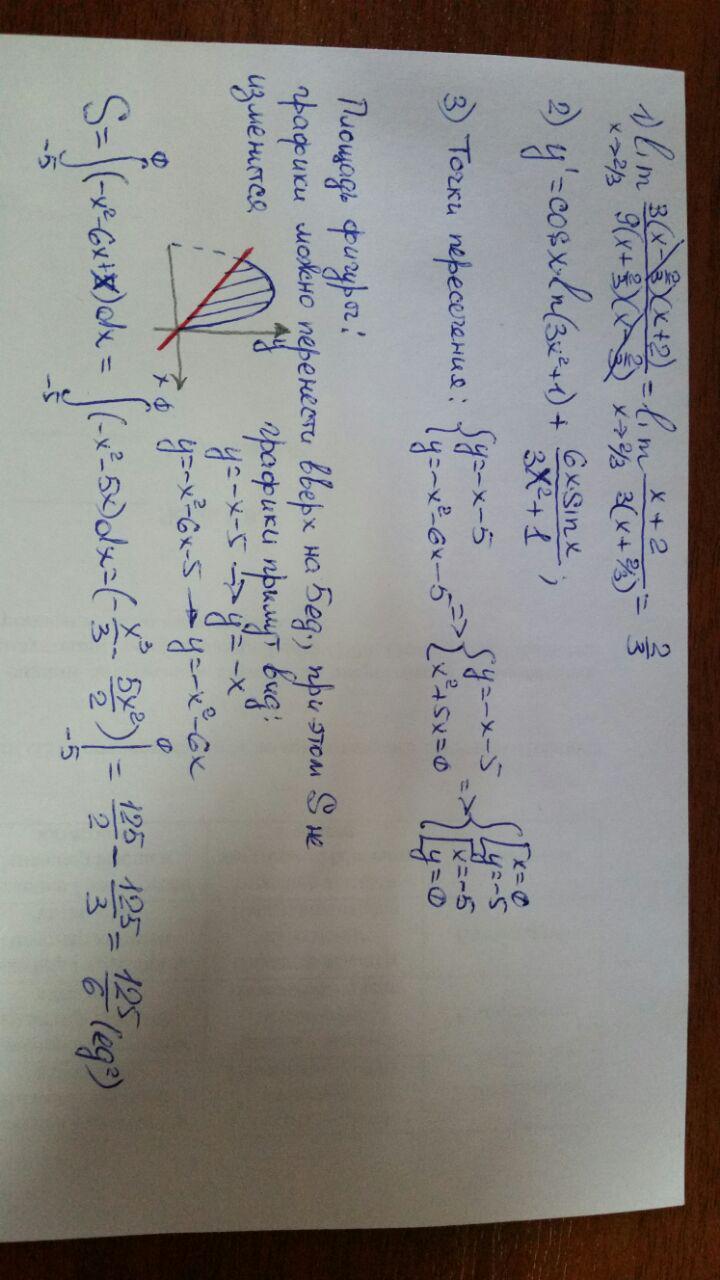 1) lim x→2/3 3(x-2/3)(x+2) / 9(x+2/3)(x-2/3) = lim x→2/3 x+2 / 3(x+2/3) = 2/3
2) y' = cosx·ln(3x²+1) + 6x sinx / 3x²+1 ;
3) Точки пересечения: { y=-x-5 y=-x²-6x-5 => { y=-x-5 x²+5x=0 => { [ x=0 y=-5 [ x=-5 y=0
Площадь фигуры:
графики можно перенести вверх на 5 ед., при этом S не
изменится
графики примут вид:
y=-x-5 → y=-x
y=-x²-6x-5 → y=-x²-6x
y
x
S = ∫ -5 0 (-x²-6x+x)dx = ∫ -5 0 (-x²-5x)dx = (-x³/3 - 5x²/2) | -5 0 = 125/2 - 125/3 = 125/6 (ед²)